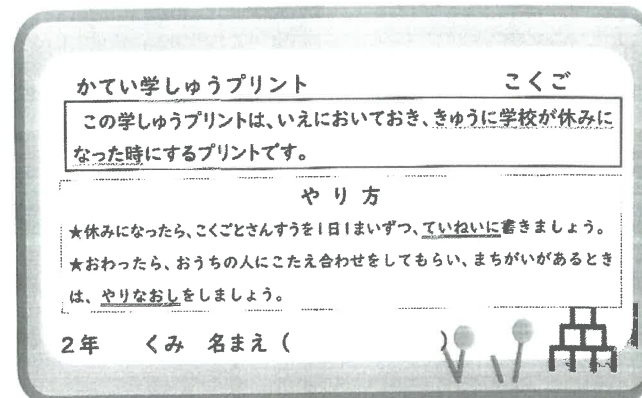 かてい学しゅうプリント　　こくご
この学しゅうプリントは、いえにおいておき、きゅうに学校が休みに
なった時にするプリントです。
やり方
★休みになったら、こくごとさんすうを1日1まいずつ、ていねいに書きましょう。
★おわったら、おうちの人にこたえ合わせをしてもらい、まちがいがあるとき
は、やりなおしをしましょう。
2年　　くみ　名まえ（　　　　　　）